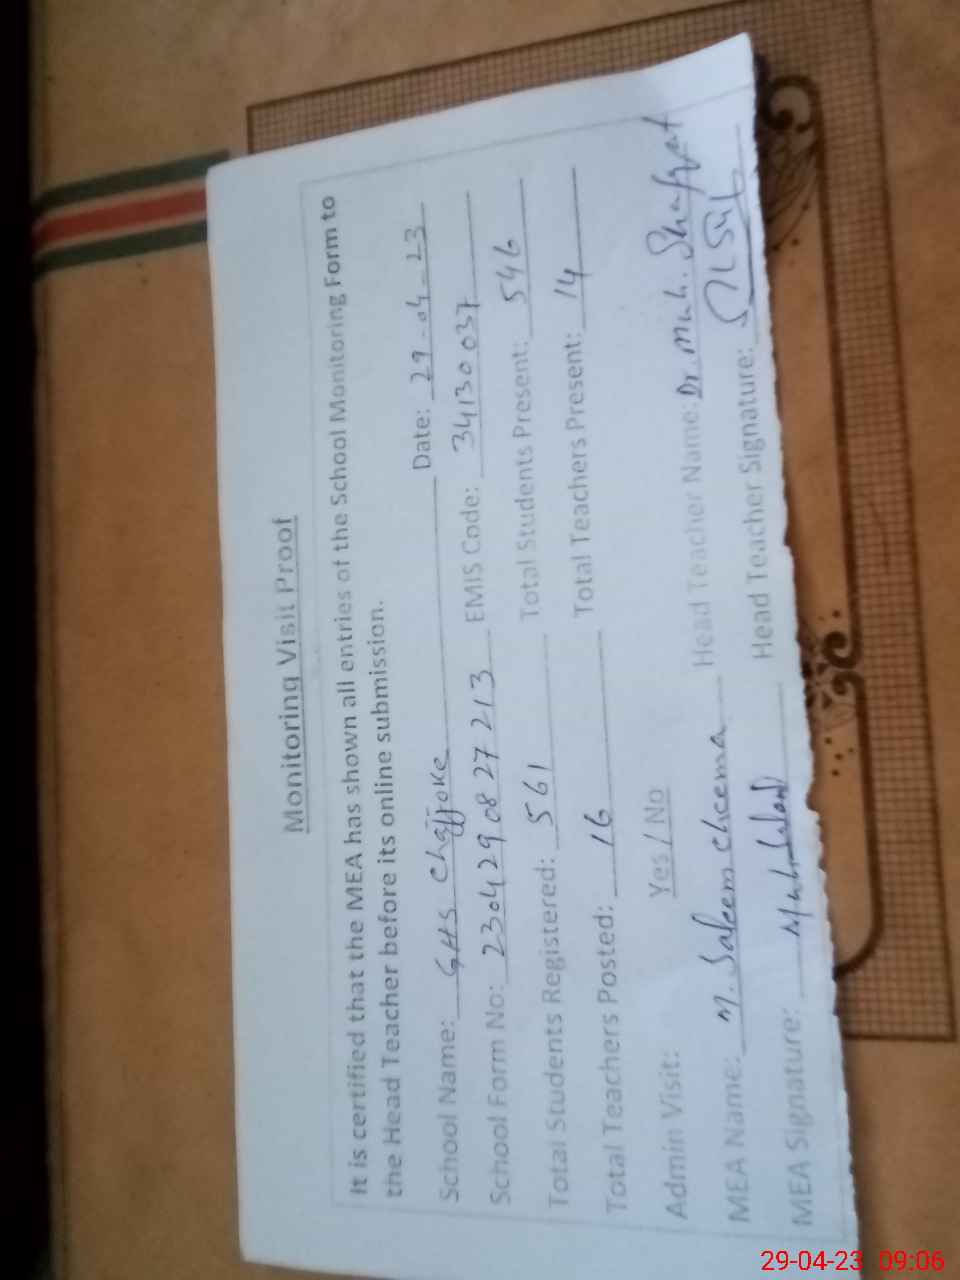 Monitoring Visit Proof
It is certified that the MEA has shown all entries of the School Monitoring Form to
the Head Teacher before its online submission.
School Name: GHS Chajjoke Date: 29-04-23
School Form No: 23042908 27 213 EMIS Code: 34130037
Total Students Registered: 561 Total Students Present: 546
Total Teachers Posted: 16 Total Teachers Present: 14
Admin Visit: Yes / No
MEA Name: M. Saleem cheema Head Teacher Name: Dr. Muh. Shafqat
MEA Signature: Head Teacher Signature:
29-04-23 09:06